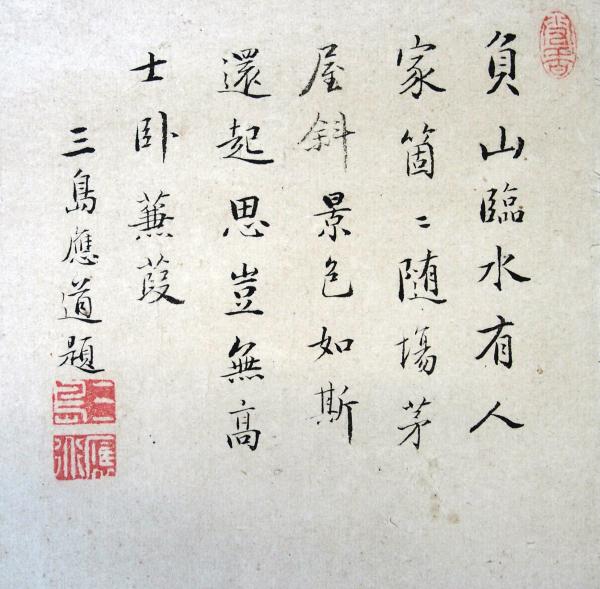 負山臨水有人
家箇〻随場茅
屋斜景色如斯
還起思豈無高
士卧蒹葭
三島應道題